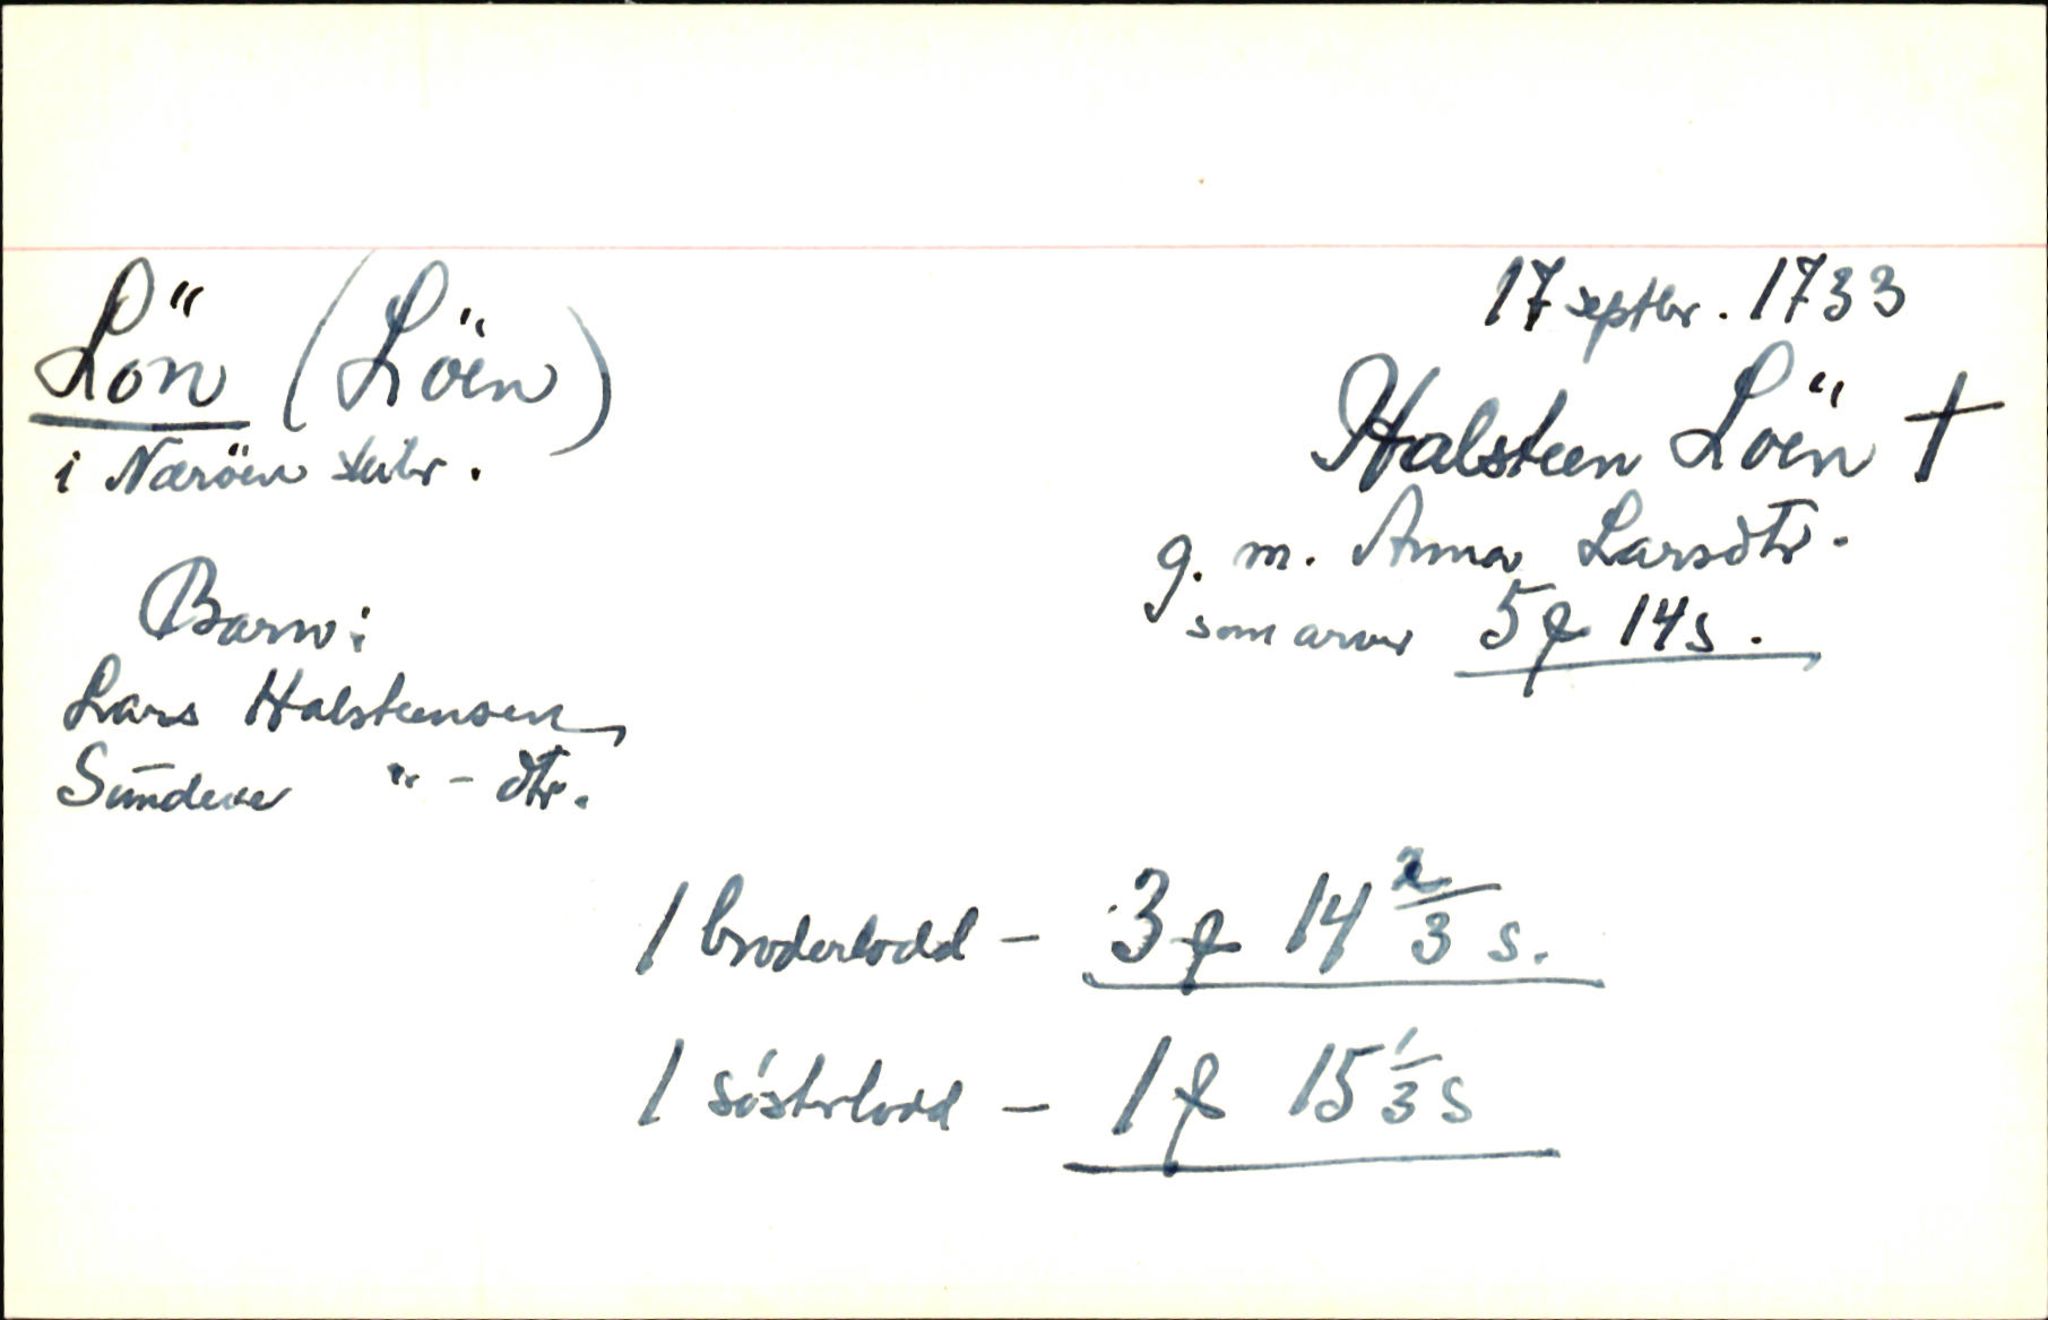 Lön (Löen)
i Næröen skibr.
17 septbr. 1733
Halsteen Löen †
g. m. Anna Larsdtr.
som arver 5 14 s.
Barn:
Lars Halsteensen
" - dtr.
1 broderlodd - 3 14 2/3 s.
1 sösterlodd - 1 15 1/3 s